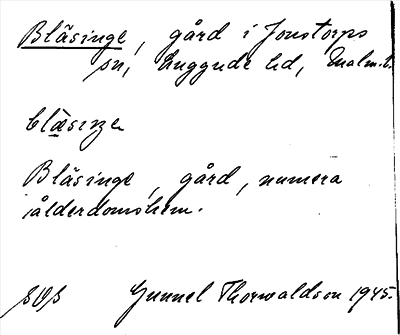 Bläsinge, gård i Jonstorps
sn, Luggude hd, Malm. l.
blæsiŋe
Bläsinge, gård, numera
ålderdomshem.
SOS Gunnel Thorwaldson 1945.